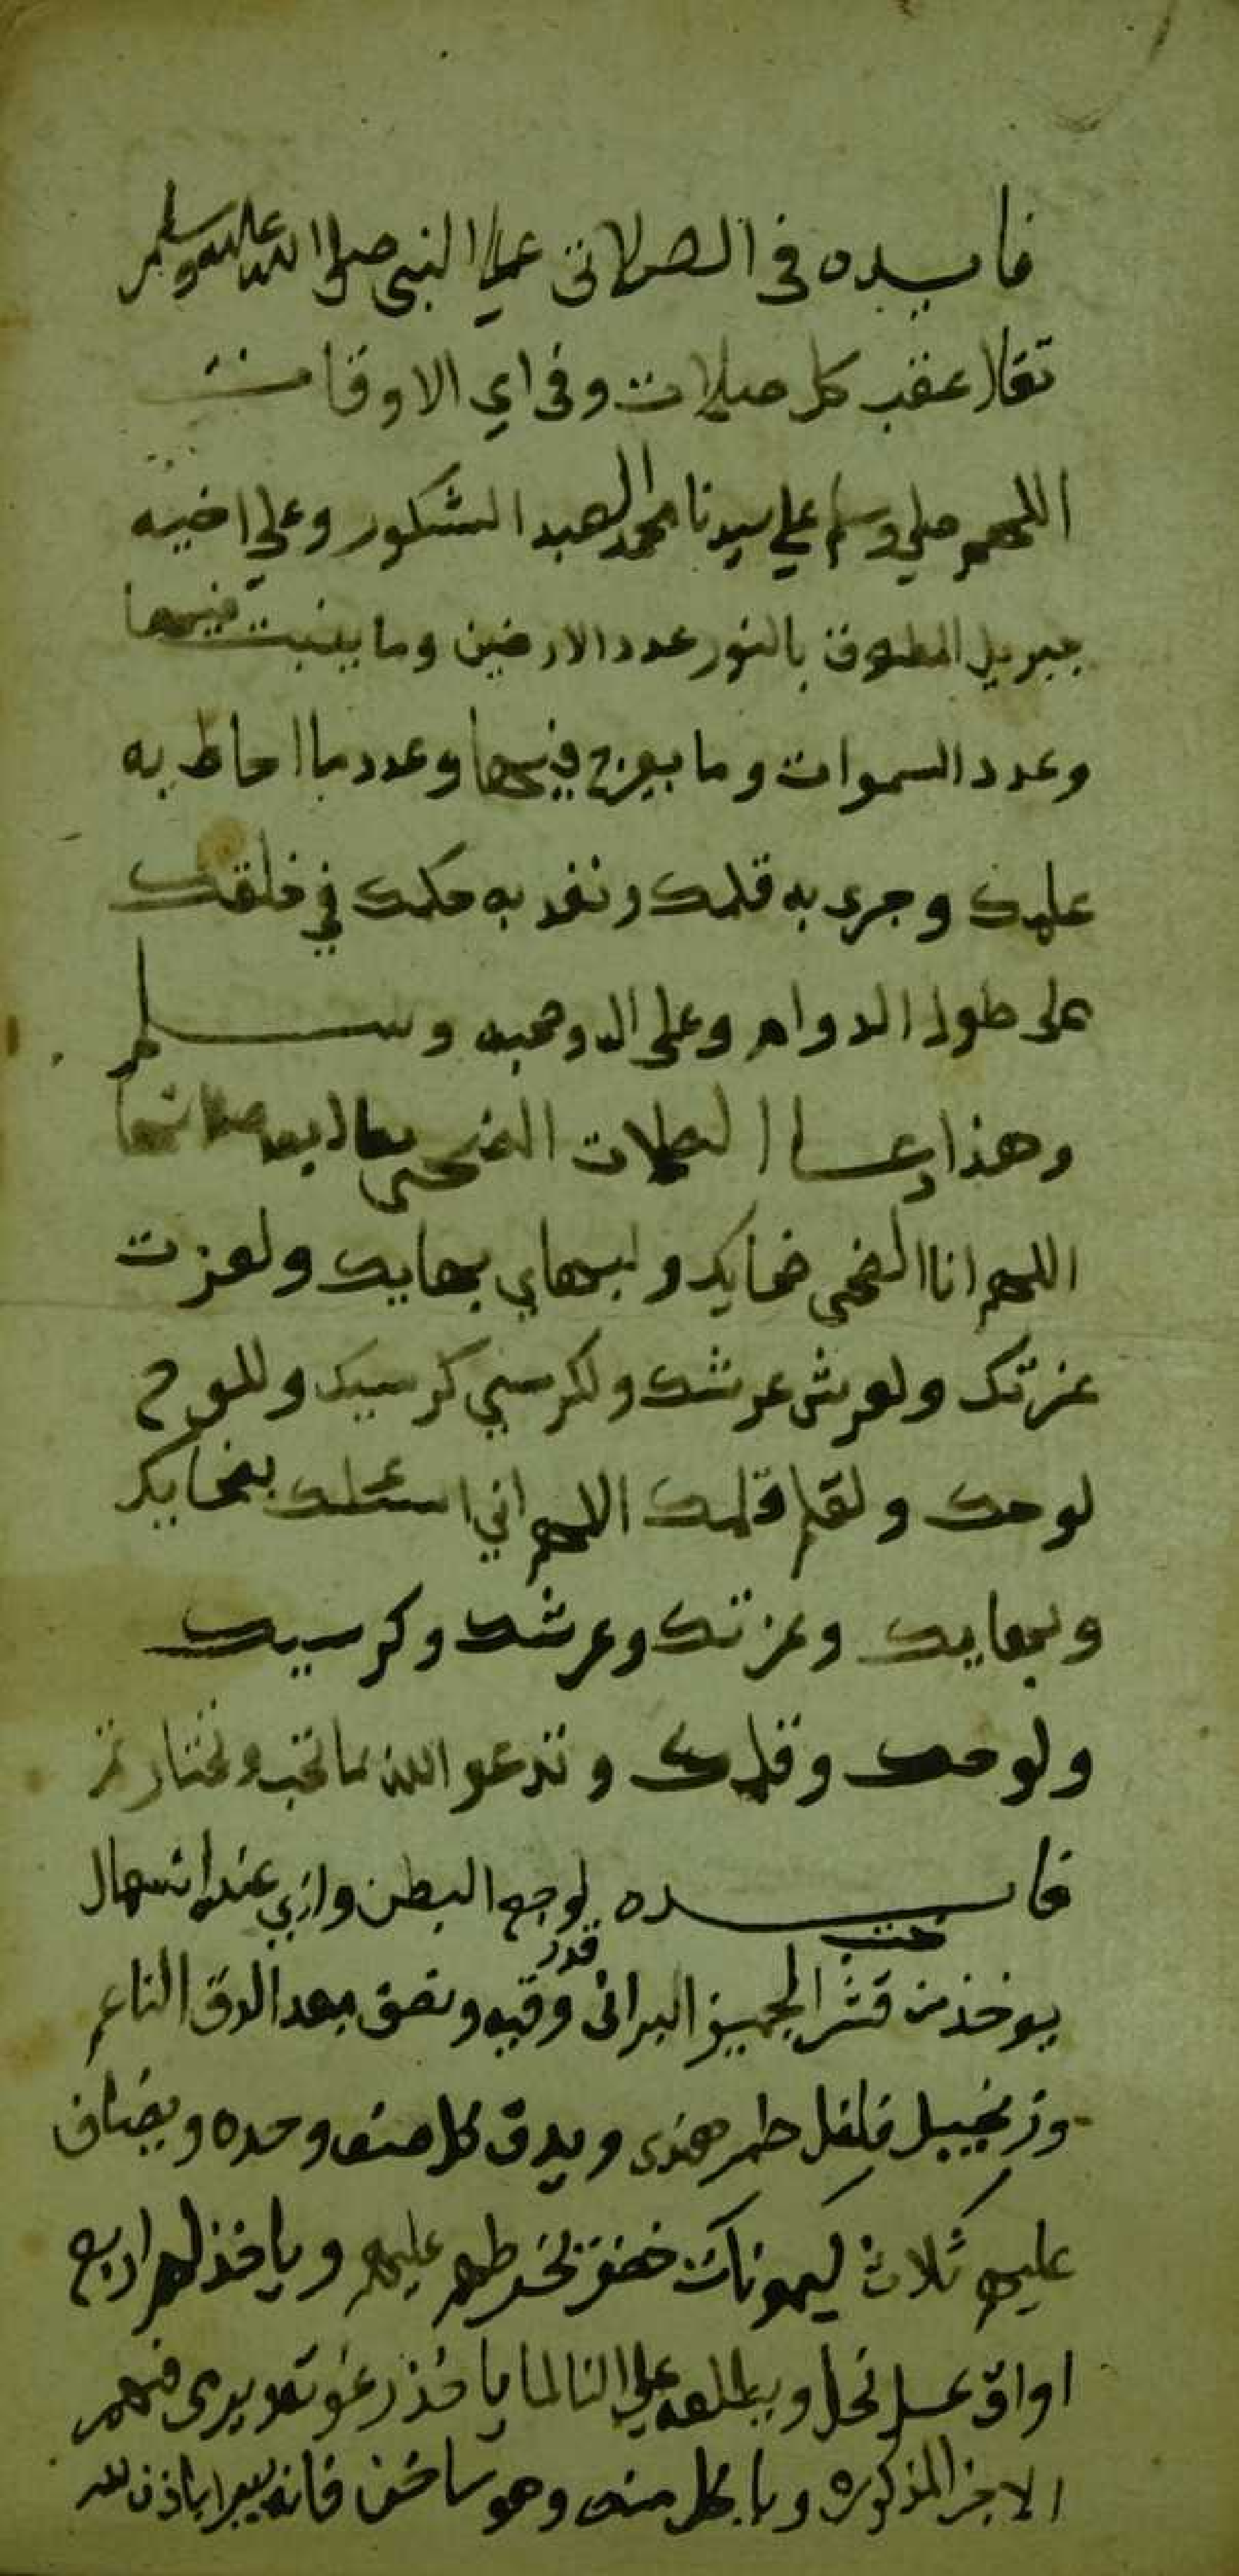 فايده في الصلاتي علي النبي صلي الله عليه وسلم
تقال عقب كل صلات وفي اي الاوقات
اللهم صلي وسلم علي سيدنا محمد العبد الشكور وعلي اخيه
جبريل المطوق بالنور عدد الارضين وما ينبت فيها
وعدد السموات وما يعرج فيها وعدد ما احاط به
علمك وجرى به قلمك ونفد به حكمك في خلقك
على طول الدوام وعلى اله وصحبه وسلم
وهذا دعا الصلات الضحى
اللهم انا الضحى ضحايك ولبهاي بهايك ولعزت
عزتك ولعرش عرشك ولكرسي كرسيك وللوح
لوحك ولقلم قلمك اللهم اني اسئلك بضحايك
وبهايك وعزتك وعرشك وكرسيك
ولوحك وقلمك وتدعو الله بما تحب وتختار تم
فايده لوجع البطن وازي عنده اسهال
يوخذ من قشر الجميز البراني قدر وقيه وتصف بعد الدق الناعم
وزنجبيل فلفل حلمر هندى ويدق كل صنف وحده ويضاف
عليهم ثلاث ليمونات خضر تخرطهم عليهم وياخذ لهم اربع
اواق عسل نحل ويطلعه علي النار لما ياخذ رغوته ويرمى فيهم
الاجزا المذكوره ويا يكل منه وهو ساخن فانه يبرا باذن الله